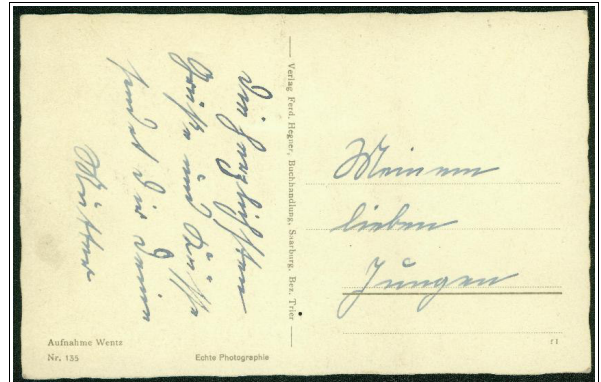 Die herzlichsten
Grüße und Küsse
sendet Dir Deine
Mutter
Verlag Ferd. Hegner, Buchhandlung, Saarburg, Bez. Trier
Meinem
lieben
Jungen
Aufnahme Wentz
Nr. 135
Echte Photographie